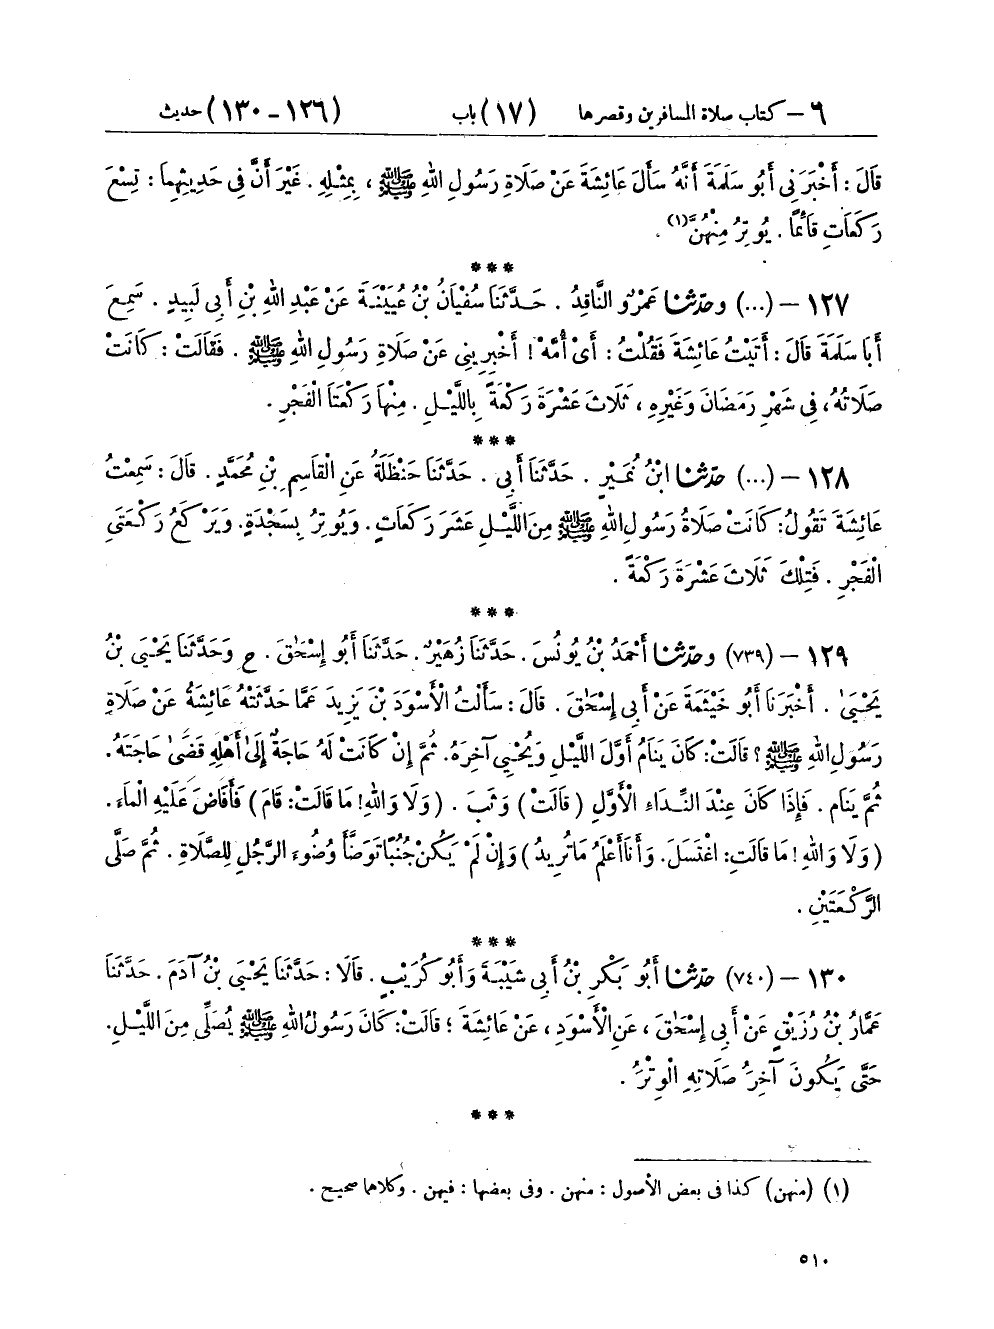 ٦ – كتاب صلاة المسافرين وقصرها (١٧) باب (١٢٦ – ١٣٠) حديث
قَالَ : أَخْبَرَنِي أَبُو سَلَمَةَ أَنَّهُ سَأَلَ عَائِشَةَ عَنْ صَلَاةِ رَسُولِ اللهِ ﷺ ، بِمِثْلِهِ . غَيْرَ أَنَّ فِي حَدِيثِهِمَا : تِسْعَ
رَكَعَاتٍ قَائِمًا . يُوتِرُ مِنْهُنَّ(١) .
***
١٢٧ – (...) وحَدَّثَنَا عَمْرٌو النَّاقِدُ . حَدَّثَنَا سُفْيَانُ بْنُ عُيَيْنَةَ عَنْ عَبْدِ اللهِ بْنِ أَبِي لَبِيدٍ . سَمِعَ
أَبَا سَلَمَةَ قَالَ : أَتَيْتُ عَائِشَةَ فَقُلْتُ : أَيْ أُمَّهْ ! أَخْبِرِينِي عَنْ صَلَاةِ رَسُولِ اللهِ ﷺ . فَقَالَتْ : كَانَتْ
صَلَاتُهُ، فِي شَهْرِ رَمَضَانَ وَغَيْرِهِ ، ثَلَاثَ عَشْرَةَ رَكْعَةً بِاللَّيْلِ . مِنْهَا رَكْعَتَا الْفَجْرِ .
***
١٢٨ – (...) حَدَّثَنَا ابْنُ نُمَيْرٍ . حَدَّثَنَا أَبِي . حَدَّثَنَا حَنْظَلَةُ عَنِ الْقَاسِمِ بْنِ مُحَمَّدٍ . قَالَ : سَمِعْتُ
عَائِشَةَ تَقُولُ: كَانَتْ صَلَاةُ رَسُولِ اللهِ ﷺ مِنَ اللَّيْلِ عَشَرَ رَكَعَاتٍ. وَيُوتِرُ بِسَجْدَةٍ. وَيَرْكَعُ رَكْعَتَيِ
الْفَجْرِ . فَتِلْكَ ثَلَاثَ عَشْرَةَ رَكْعَةً .
***
١٢٩ – (٧٣٩) وحَدَّثَنَا أَحْمَدُ بْنُ يُونُسَ. حَدَّثَنَا زُهَيْرٌ. حَدَّثَنَا أَبُو إِسْحَاقَ . ح وَحَدَّثَنَا يَحْيَى بْنُ
يَحْيَىٰ . أَخْبَرَنَا أَبُو خَيْثَمَةَ عَنْ أَبِي إِسْحَاقَ . قَالَ : سَأَلْتُ الْأَسْوَدَ بْنَ يَزِيدَ عَمَّا حَدَّثَتْهُ عَائِشَةُ عَنْ صَلَاةِ
رَسُولِ اللهِ ﷺ ؟ قَالَتْ: كَانَ يَنَامُ أَوَّلَ اللَّيْلِ وَيُحْيِي آخِرَهُ. ثُمَّ إِنْ كَانَتْ لَهُ حَاجَةٌ إِلَىٰ أَهْلِهِ قَضَىٰ حَاجَتَهُ.
ثُمَّ يَنَامُ . فَإِذَا كَانَ عِنْدَ النِّدَاءِ الْأَوَّلِ (قَالَتْ) وَثَبَ . (وَلَا وَاللهِ! مَا قَالَتْ: قَامَ) فَأَفَاضَ عَلَيْهِ الْمَاءَ.
(وَلَا وَاللهِ! مَا قَالَتِ: اغْتَسَلَ. وَأَنَا أَعْلَمُ مَا تُرِيدُ) وَإِنْ لَمْ يَكُنْ جُنُبًا تَوَضَّأَ وُضُوءَ الرَّجُلِ لِلصَّلَاةِ . ثُمَّ صَلَّى
الرَّكْعَتَيْنِ .
***
١٣٠ – (٧٤٠) حَدَّثَنَا أَبُو بَكْرِ بْنُ أَبِي شَيْبَةَ وَأَبُو كُرَيْبٍ. قَالَا : حَدَّثَنَا يَحْيَى بْنُ آدَمَ . حَدَّثَنَا
عَمَّارُ بْنُ رُزَيْقٍ عَنْ أَبِي إِسْحَاقَ ، عَنِ الْأَسْوَدِ ، عَنْ عَائِشَةَ ؛ قَالَتْ: كَانَ رَسُولُ اللهِ ﷺ يُصَلِّي مِنَ اللَّيْلِ.
حَتَّى يَكُونَ آخِرُ صَلَاتِهِ الْوِتْرُ .
***
(١) (منهن) كذا فى بعض الأصول : منهن . وفى بعضها : فيهن . وكلاهما صحيح .
٥١٠